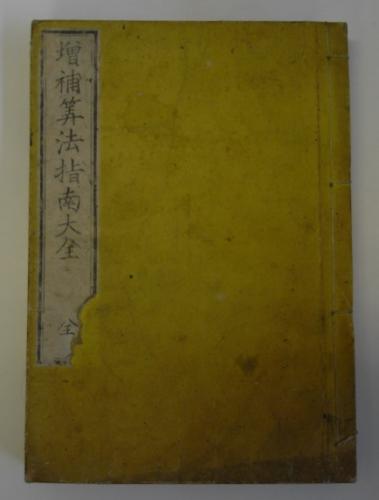 增補筭法指南大全
全